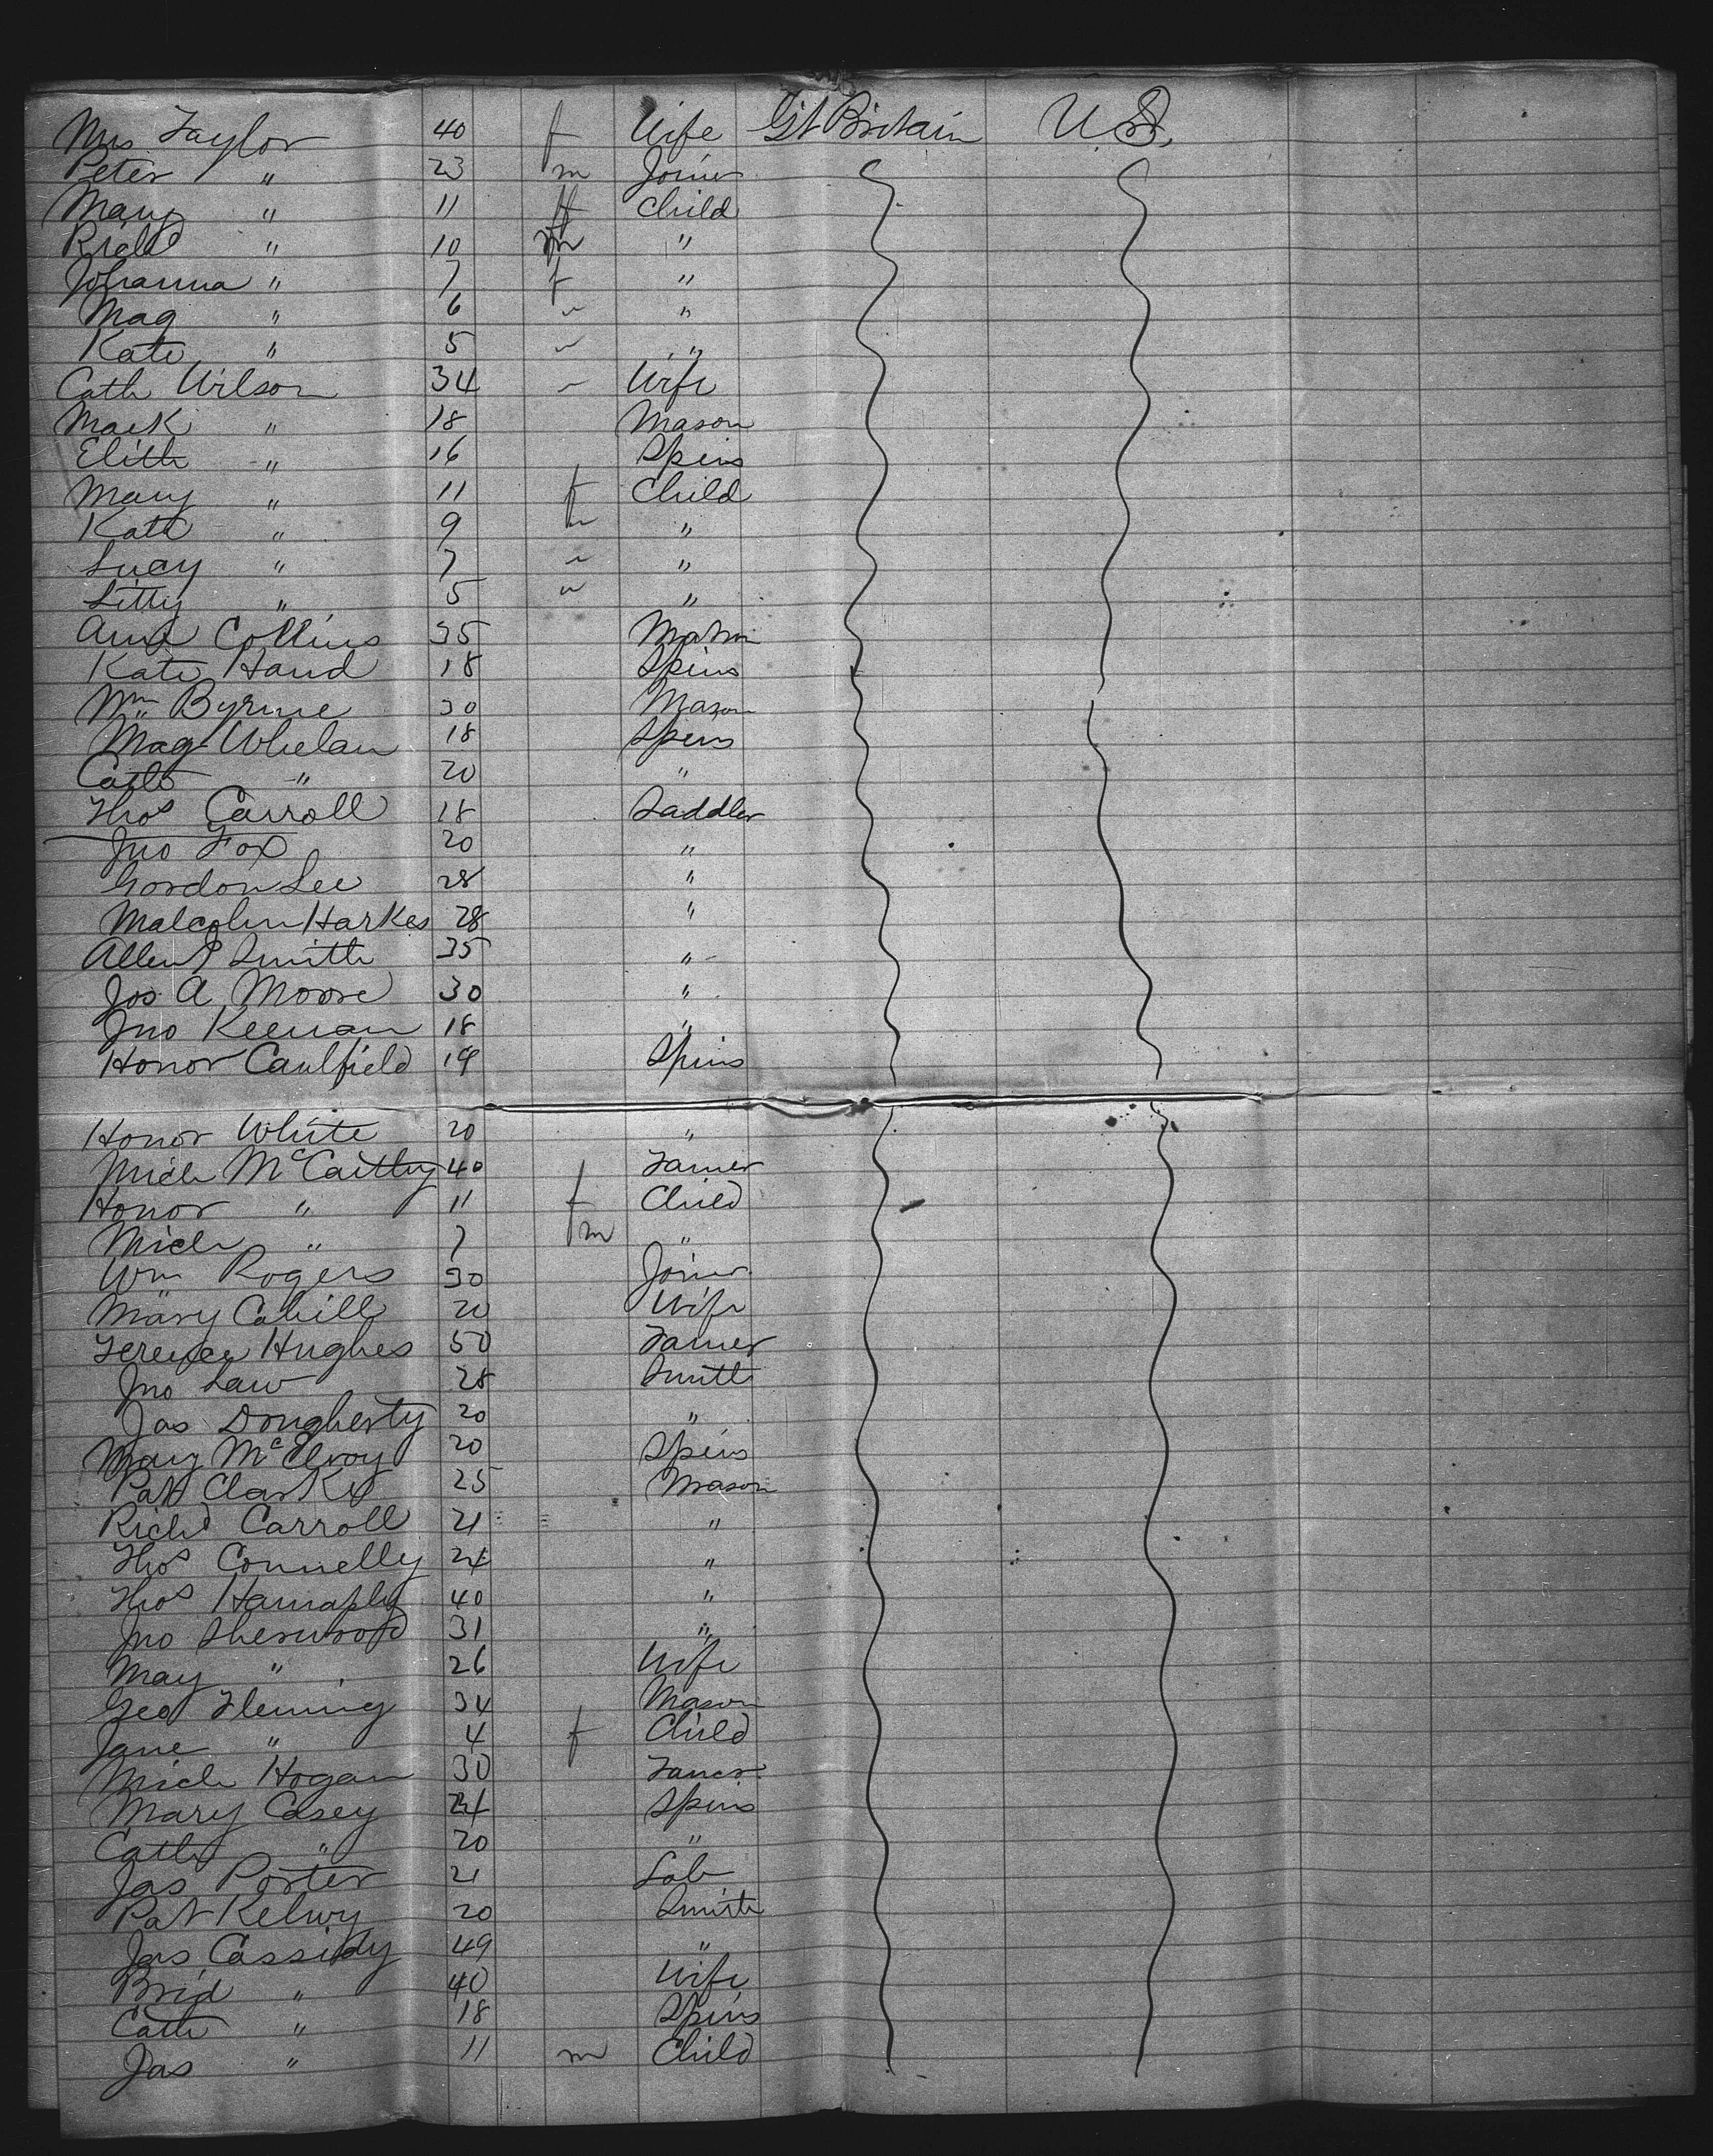 Mrs Taylor 40 f Wife Gt Britain U.S.
Peter " 23 m Joiner
Mary " 11 f Child
Richd " 10 m "
Johanna " 7 f "
Mag " 6 " "
Kate " 5 " "
Cath Wilson 34 " Wife
Mark " 18 Mason
Elith " 16 Spins
Mary " 11 f Child
Kate " 9 " "
Lucy " 7 " "
Litty " 5 " "
Ann Collins 35 Matron
Kate Hand 18 Spins
Wm Byrne 30 Mason
Mag Whelan 18 Spins
Cath " 20 "
Thos Carroll 18 Saddler
Jno Fox 20 "
Gordon Lee 28 "
Malcolm Harkes 28 "
Allen Smith 35 "
Jos A Moore 30 "
Jno Keenan 18 "
Honor Caulfield 19 Spins
Honor White 20 "
Mich McCarthy 40 Farmer
Honor " 11 f Child
Mich " 7 m "
Wm Rogers 30 Joiner
Mary Cahill 20 Wife
Terence Hughes 50 Farmer
Jno Law 28 Smith
Jas Dougherty 20 "
Mary McElroy 20 Spins
Pat Clarke 25 Mason
Richd Carroll 21 "
Thos Connelly 24 "
Thos 40 "
Jno Sherwood 31 "
May " 26 Wife
Geo Fleming 34 Mason
Jane " 4 f Child
Mich Hogan 30 Farmer
Mary Casey 24 Spins
Cath " 20 "
Jas Porter 21 Lab
Pat 20 Smith
Jas Cassidy 49 "
Brid " 40 Wife
Cath " 18 Spins
Jas " 11 m Child